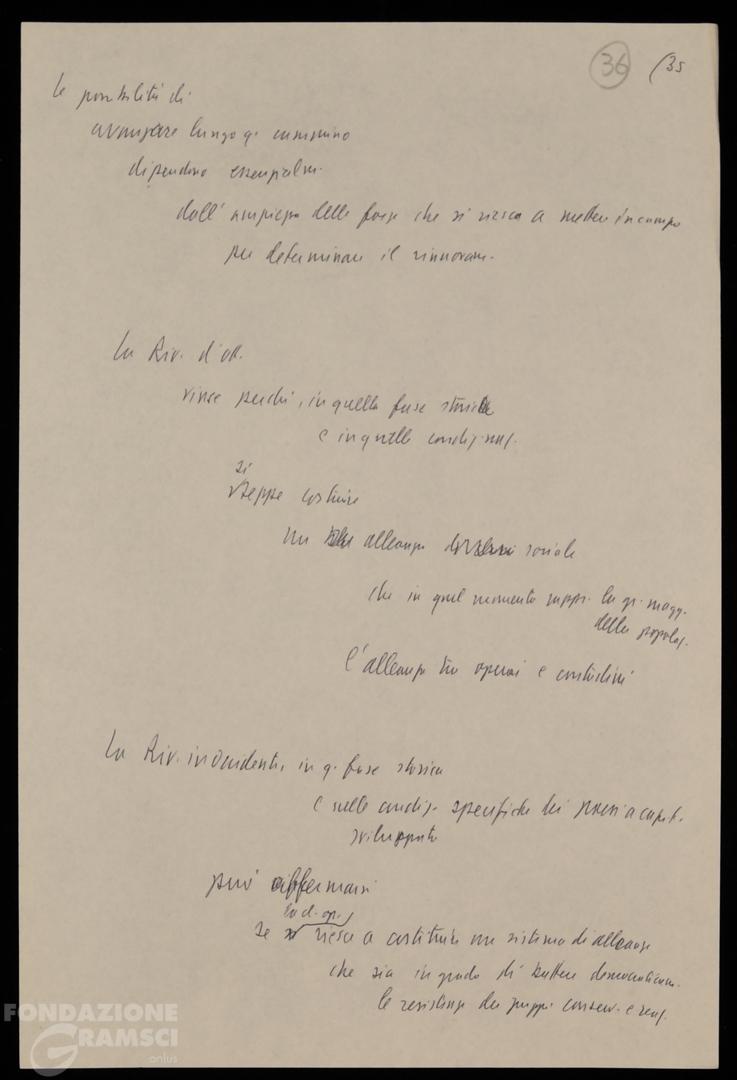 36 (35
le possibilità di
avanzare lungo q. cammino
dipendono essenzialm.
dall'ampiezza delle forze che si riesca a mettere in campo
per determinare il rinnovam.
La Riv. d'ott.
vince perché, in quella fase storica
e in quelle condiz.
si
seppe costruire
un alleanza sociale
che in quel momento rappr. la gr. magg.
della popolaz.
l'alleanza tra operai e contadini
La Riv. in Occidente, in q. fase storica
e nelle condiz. specifiche dei paesi a capit.
sviluppato
può affermarsi
la cl. op.
se riesce a costituire un sistema di alleanze
che sia in grado di battere democraticam.
le resistenze dei gruppi conserv. e reaz.
FONDAZIONE
GRAMSCI
onlus